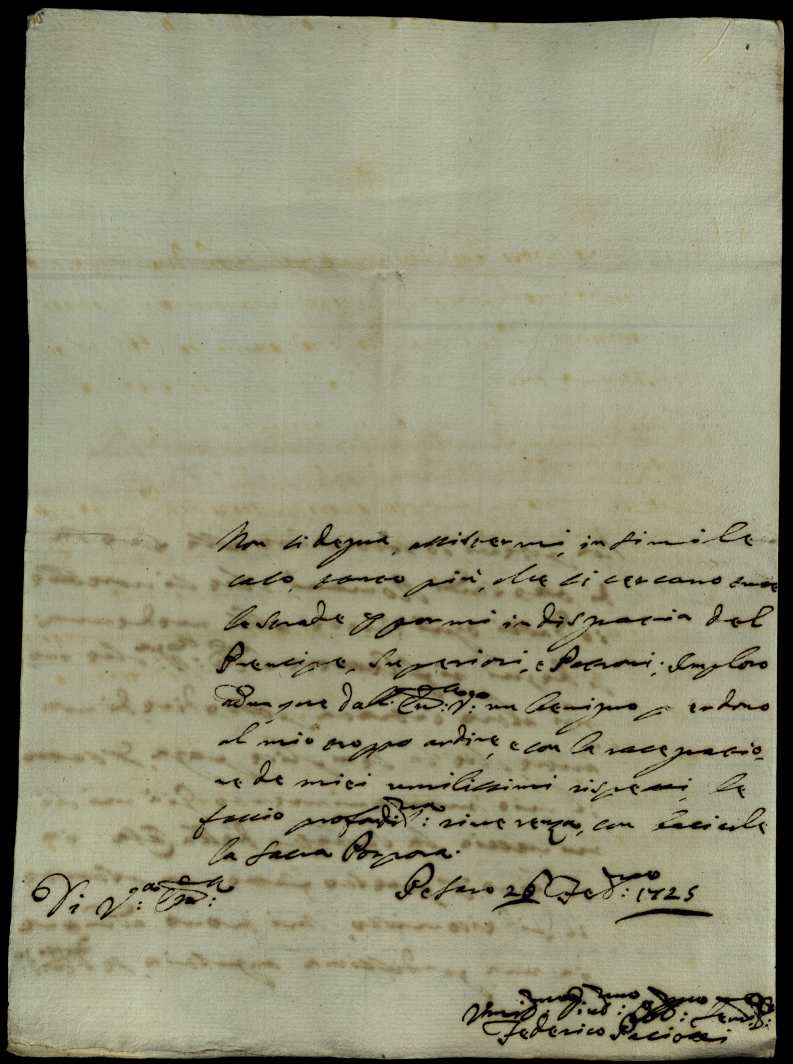 Non si degna, assistermi, in simile
caso, tanto più, che si cercano tutte
le strade p pormi in disgrazia del
Prencipe, Superiori, e Padroni; Imploro
adunque dall' Em: V: un benigno perdono
al mio troppo ardire, e con la rasegnazio-
ne de miei umilissimi rispetti, le
faccio profondis:ma riverenza, con baciarle
la Sacra Porpora.
Di V: Em:
Pesaro 26 Feb: 1725
Umil: Div: Obb: Serv:
Federico